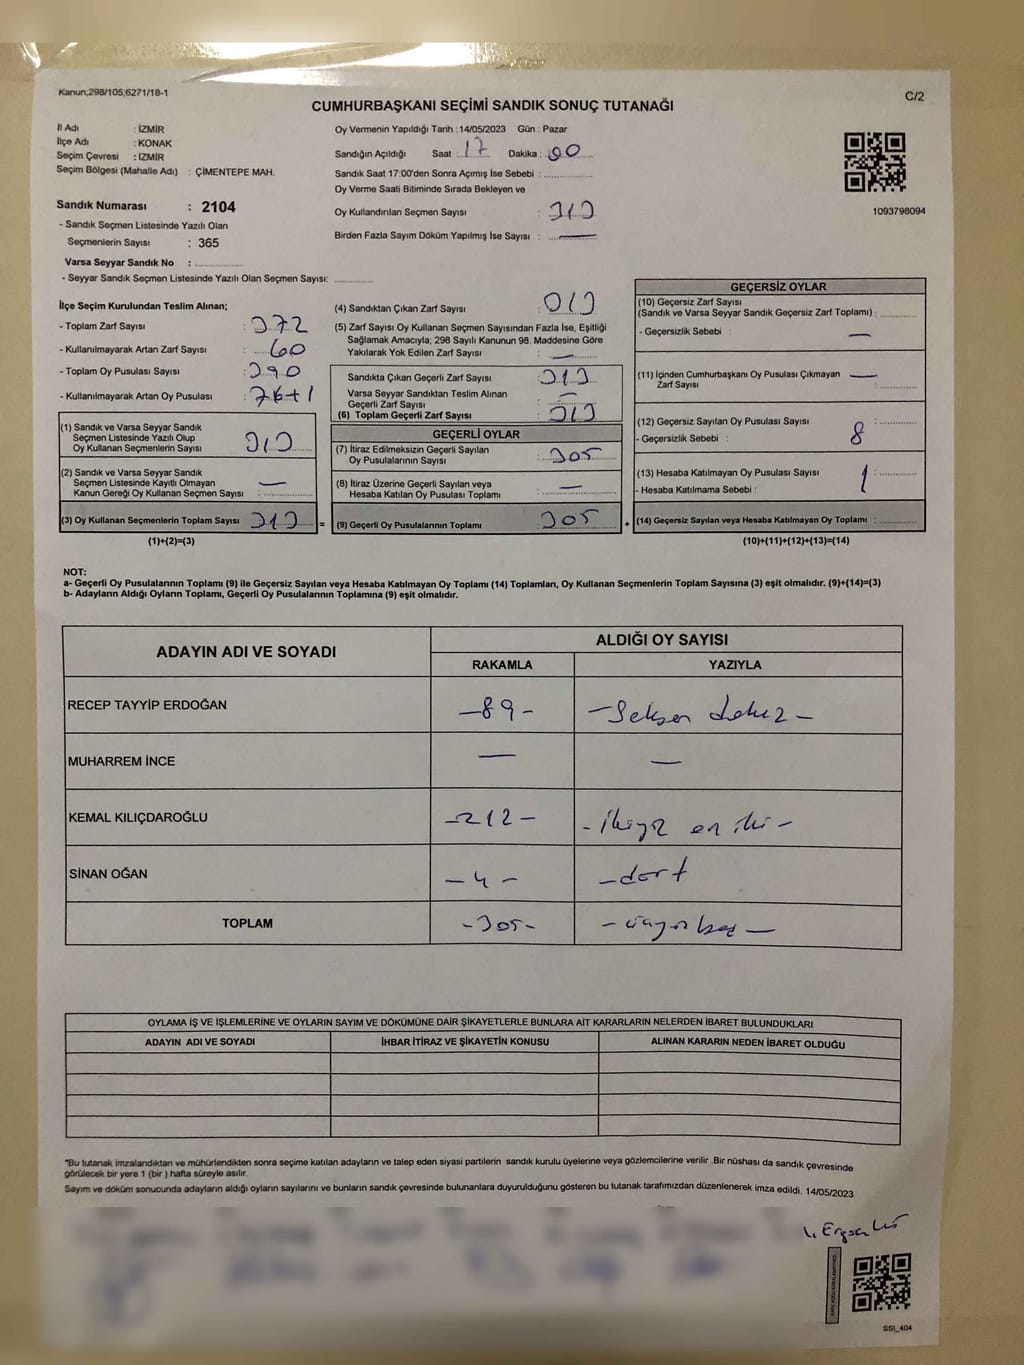 Kanun;298/105;6271/18-1
C/2
CUMHURBAŞKANI SEÇİMİ SANDIK SONUÇ TUTANAĞI
İl Adı : İZMİR
İlçe Adı : KONAK
Seçim Çevresi : İZMİR
Seçim Bölgesi (Mahalle Adı) : ÇİMENTEPE MAH.
Sandık Numarası : 2104
- Sandık Seçmen Listesinde Yazılı Olan
Seçmenlerin Sayısı : 365
Varsa Seyyar Sandık No :
- Seyyar Sandık Seçmen Listesinde Yazılı Olan Seçmen Sayısı:
Oy Vermenin Yapıldığı Tarih : 14/05/2023 Gün : Pazar
Sandığın Açıldığı Saat : 17 Dakika : 00
Sandık Saat 17:00'den Sonra Açımış İse Sebebi :
Oy Verme Saati Bitiminde Sırada Bekleyen ve
Oy Kullandırılan Seçmen Sayısı : 313
Birden Fazla Sayım Döküm Yapılmış İse Sayısı : —
1093798094
İlçe Seçim Kurulundan Teslim Alınan;
- Toplam Zarf Sayısı : 372
- Kullanılmayarak Artan Zarf Sayısı : 60
- Toplam Oy Pusulası Sayısı : 390
- Kullanılmayarak Artan Oy Pusulası : 76+1
(1) Sandık ve Varsa Seyyar Sandık
Seçmen Listesinde Yazılı Olup
Oy Kullanan Seçmenlerin Sayısı : 313
(2) Sandık ve Varsa Seyyar Sandık
Seçmen Listesinde Kayıtlı Olmayan
Kanun Gereği Oy Kullanan Seçmen Sayısı : —
(3) Oy Kullanan Seçmenlerin Toplam Sayısı : 313 =
(1)+(2)=(3)
(4) Sandıktan Çıkan Zarf Sayısı : 313
(5) Zarf Sayısı Oy Kullanan Seçmen Sayısından Fazla İse, Eşitliği
Sağlamak Amacıyla; 298 Sayılı Kanunun 98. Maddesine Göre
Yakılarak Yok Edilen Zarf Sayısı : —
Sandıkta Çıkan Geçerli Zarf Sayısı : 313
Varsa Seyyar Sandıktan Teslim Alınan
Geçerli Zarf Sayısı : —
(6) Toplam Geçerli Zarf Sayısı : 313
GEÇERLİ OYLAR
(7) İtiraz Edilmeksizin Geçerli Sayılan
Oy Pusulalarının Sayısı : 305
(8) İtiraz Üzerine Geçerli Sayılan veya
Hesaba Katılan Oy Pusulası Toplamı : —
(9) Geçerli Oy Pusulalarının Toplamı : 305 +
GEÇERSİZ OYLAR
(10) Geçersiz Zarf Sayısı
(Sandık ve Varsa Seyyar Sandık Geçersiz Zarf Toplamı) :
- Geçersizlik Sebebi : —
(11) İçinden Cumhurbaşkanı Oy Pusulası Çıkmayan —
Zarf Sayısı :
(12) Geçersiz Sayılan Oy Pusulası Sayısı :
- Geçersizlik Sebebi : 8
(13) Hesaba Katılmayan Oy Pusulası Sayısı :
- Hesaba Katılmama Sebebi : 1
(14) Geçersiz Sayılan veya Hesaba Katılmayan Oy Toplamı :
(10)+(11)+(12)+(13)=(14)
NOT:
a- Geçerli Oy Pusulalarının Toplamı (9) ile Geçersiz Sayılan veya Hesaba Katılmayan Oy Toplamı (14) Toplamları, Oy Kullanan Seçmenlerin Toplam Sayısına (3) eşit olmalıdır. (9)+(14)=(3)
b- Adayların Aldığı Oyların Toplamı, Geçerli Oy Pusulalarının Toplamına (9) eşit olmalıdır.
ADAYIN ADI VE SOYADI ALDIĞI OY SAYISI
RAKAMLA YAZIYLA
RECEP TAYYİP ERDOĞAN -89- -Seksen dokuz-
MUHARREM İNCE — —
KEMAL KILIÇDAROĞLU -212- -ikiyüz on iki-
SİNAN OĞAN -4- -dört
TOPLAM -305- -üçyüz beş-
OYLAMA İŞ VE İŞLEMLERİNE VE OYLARIN SAYIM VE DÖKÜMÜNE DAİR ŞİKAYETLERLE BUNLARA AİT KARARLARIN NELERDEN İBARET BULUNDUKLARI
ADAYIN ADI VE SOYADI İHBAR İTİRAZ VE ŞİKAYETİN KONUSU ALINAN KARARIN NEDEN İBARET OLDUĞU
*Bu tutanak imzalandıktan ve mühürlendikten sonra seçime katılan adayların ve talep eden siyasi partilerin sandık kurulu üyelerine veya gözlemcilerine verilir .Bir nüshası da sandık çevresinde
görülecek bir yere 1 (bir ) hafta süreyle asılır.
Sayım ve döküm sonucunda adayların aldığı oyların sayılarını ve bunların sandık çevresinde bulunanlara duyurulduğunu gösteren bu tutanak tarafımızdan düzenlenerek imza edildi. 14/05/2023
SSI_404